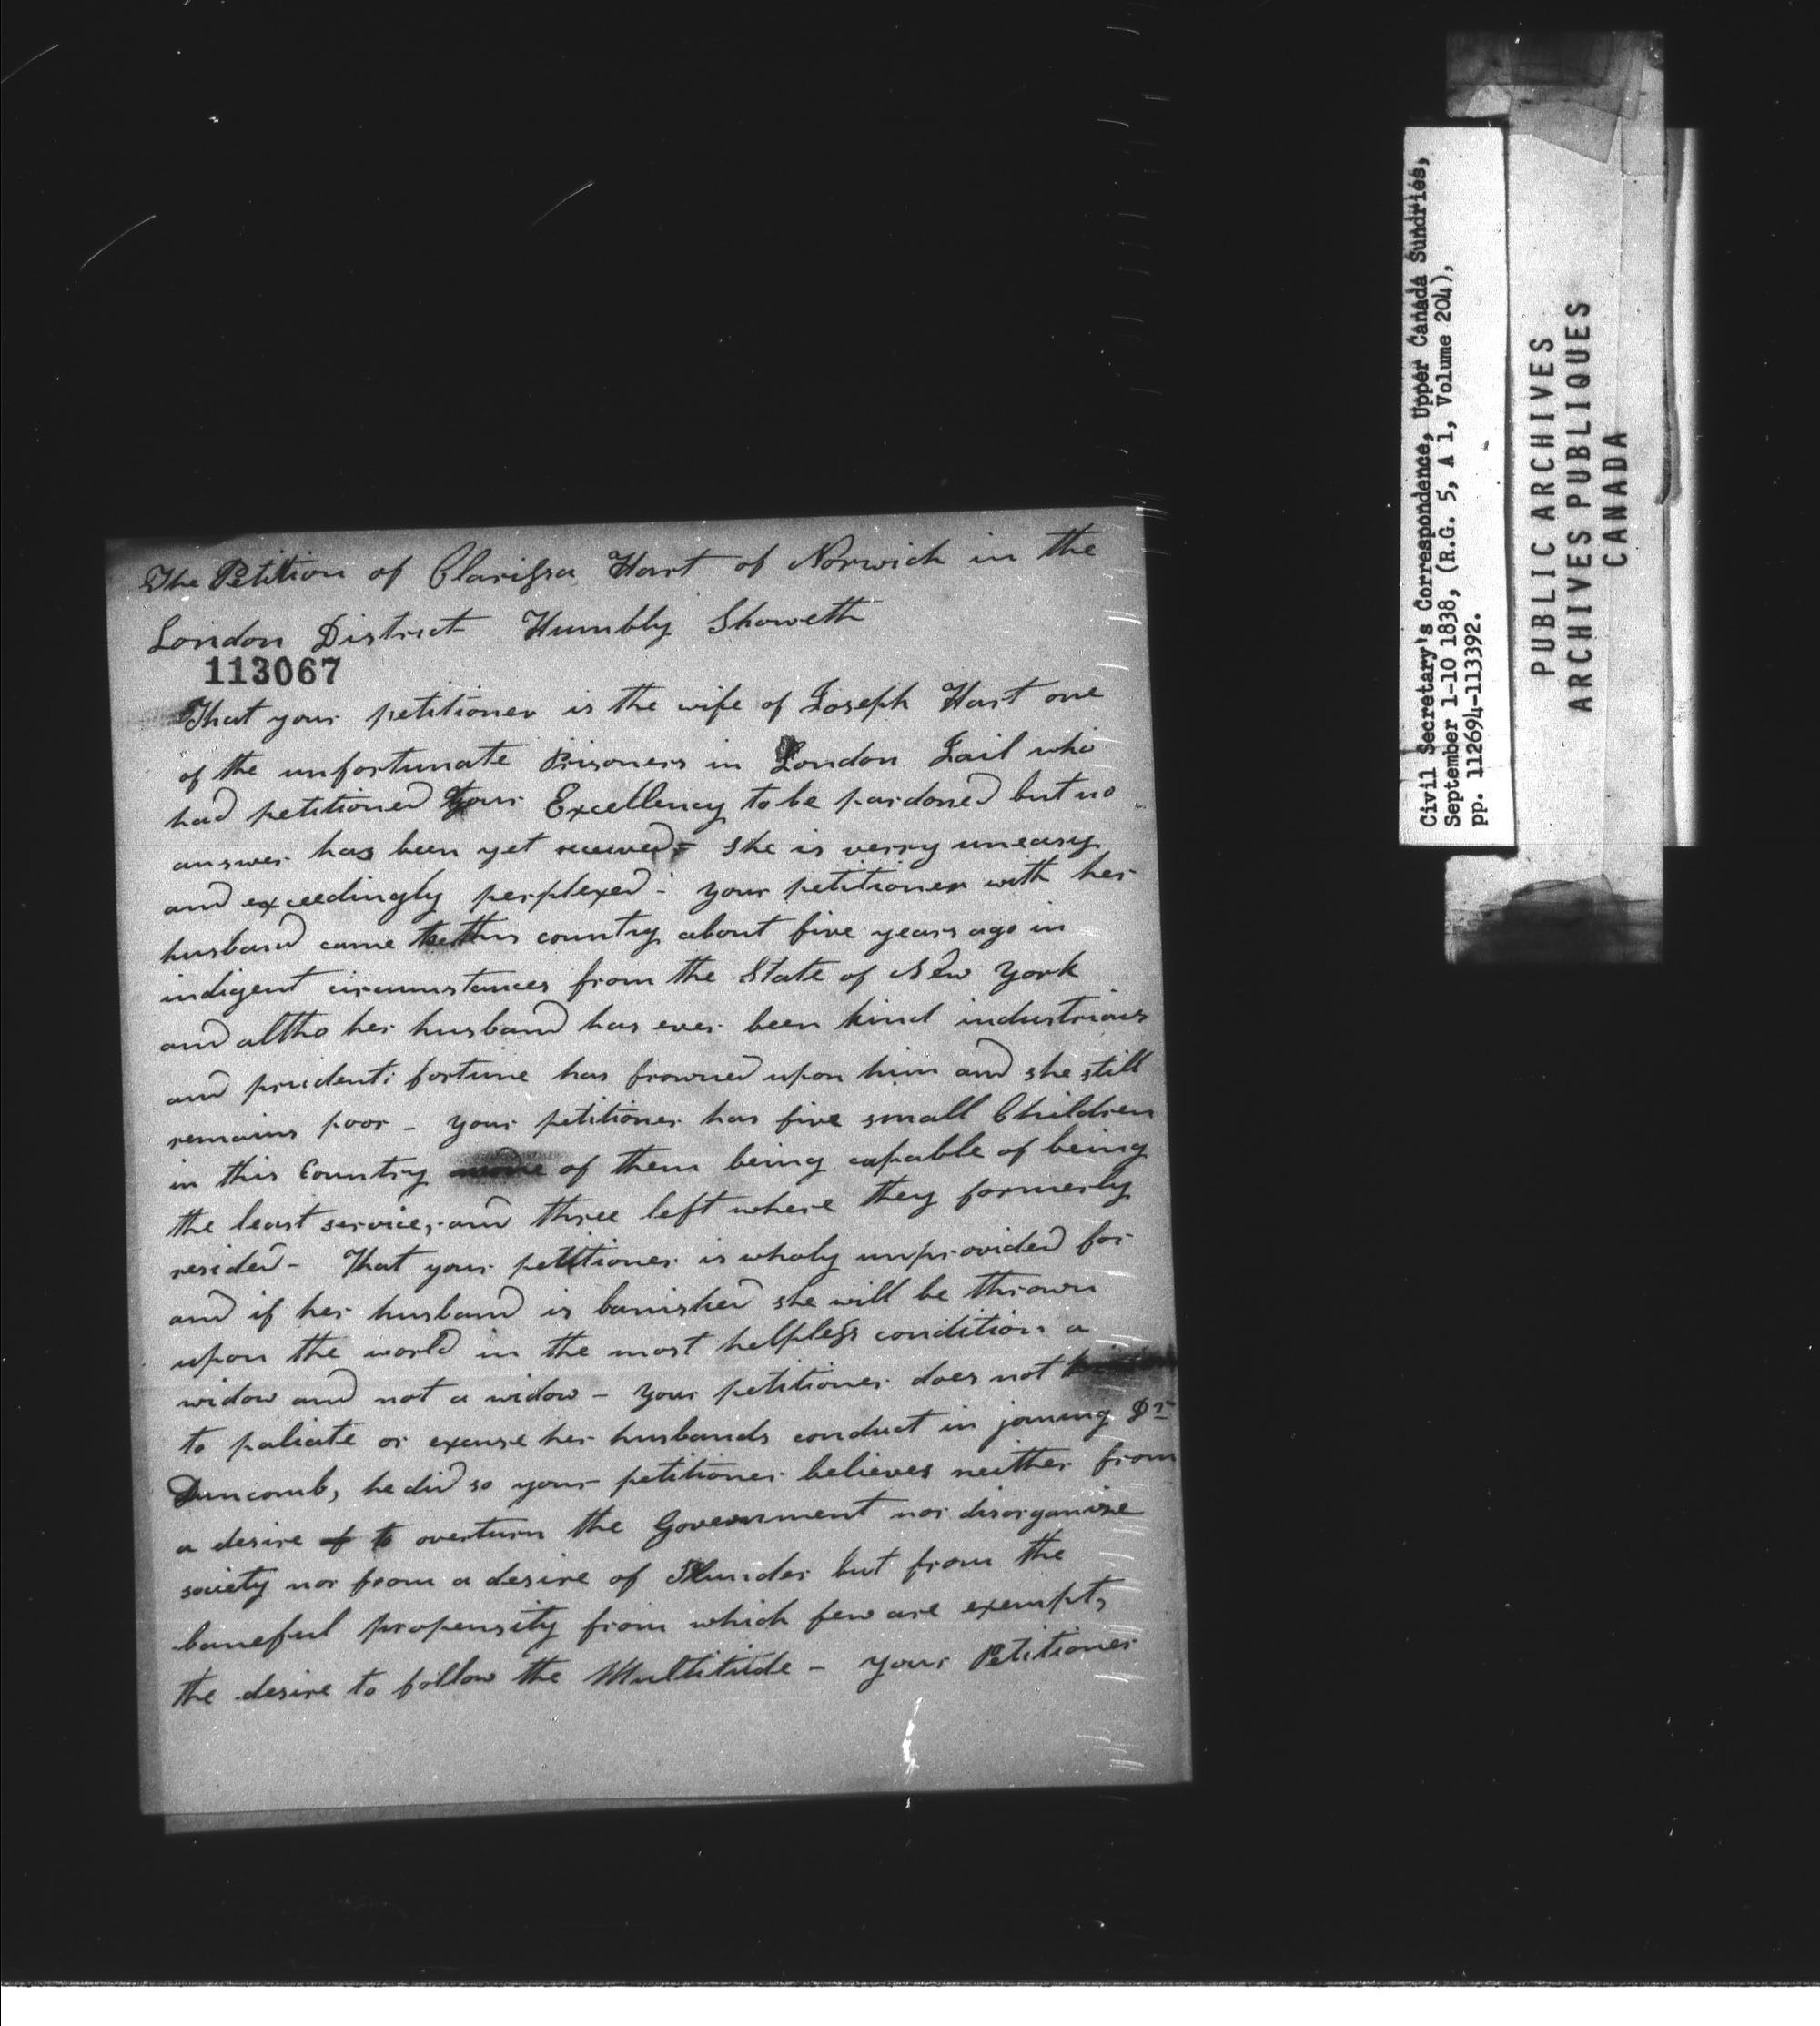 The Petition of Clarissa Hart of Norwich in the
London District Humbly Showeth
113067
That your petitioner is the wife of Joseph Hart one
of the unfortunate Prisoners in London Jail who
had petitioned your Excellency to be pardoned but no
answer has been yet received - she is verry uneasy
and exceedingly perplexed - your petitioner with her
husband came to this country about five years ago in
indigent circumstances from the State of New York
and altho her husband has ever been kind industrious
and prudent; fortune has frowned upon him and she still
remains poor - your petitioner has five small Children
in this Country none of them being capable of being
the least service, and three left where they formerly
resided - That your petitioner is wholy unprovided for
and if her husband is banished she will be thrown
upon the world in the most helpless condition a
widow and not a widow - your petitioner does not
to paliate or excuse her husbands conduct in joining Dr
Duncomb, he did so your petitioner believes neither from
a desire of to overturn the Government nor disorganise
society nor from a desire of Plunder but from the
baneful propensity from which few are exempt,
the desire to follow the Multitude - your Petitioner
Civil Secretary's Correspondence, Upper Canada Sundries,
September 1-10 1838, (R.G. 5, A 1, Volume 204),
pp. 112694-113392.
PUBLIC ARCHIVES
ARCHIVES PUBLIQUES
CANADA